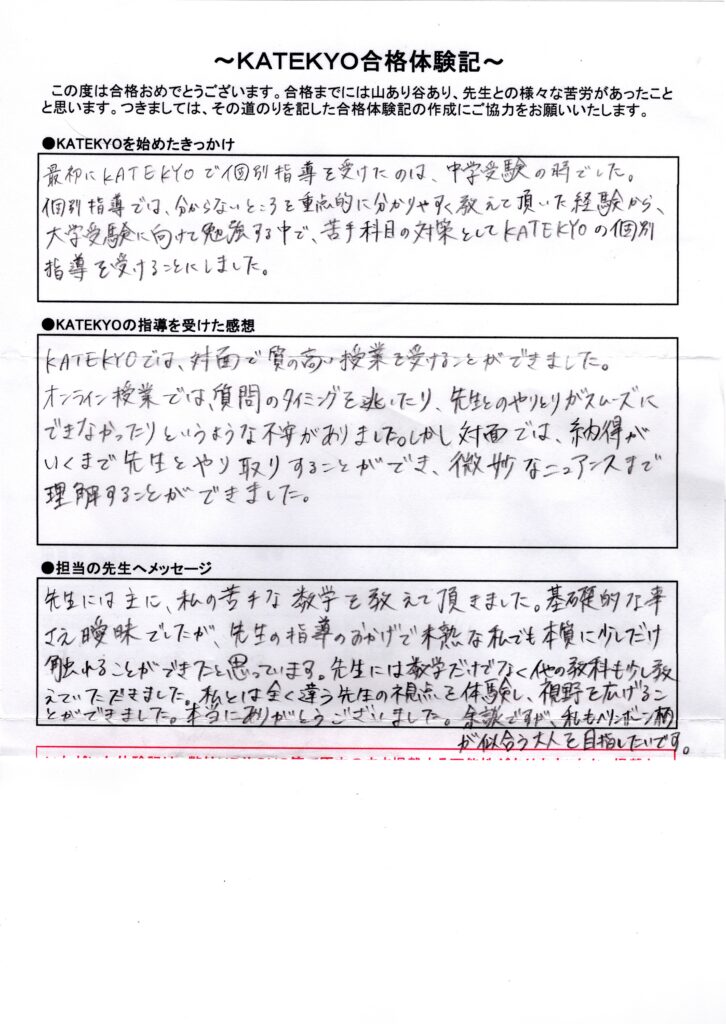 ～KATEKYO合格体験記～
この度は合格おめでとうございます。合格までには山あり谷あり、先生との様々な苦労があったこと
と思います。つきましては、その道のりを記した合格体験記の作成にご協力をお願いいたします。
●KATEKYOを始めたきっかけ
最初にKATEKYOで個別指導を受けたのは、中学受験の時でした。
個別指導では、分からないところを重点的に分かりやすく教えて頂いた経験から、
大学受験に向けて勉強する中で、苦手科目の対策としてKATEKYOの個別
指導を受けることにしました。
●KATEKYOの指導を受けた感想
KATEKYOでは、対面で質の高い授業を受けることができました。
オンライン授業では、質問のタイミングを逃したり、先生とのやりとりがスムーズに
できなかったりというような不安がありました。しかし対面では、納得が
いくまで先生とやり取りすることができ、微妙なニュアンスまで
理解することができました。
●担当の先生へメッセージ
先生には主に、私の苦手な数学を教えて頂きました。基礎的な事
さえ曖昧でしたが、先生の指導のおかげで未熟な私でも本質に少しだけ
触れることができたと思っています。先生には数学だけでなく他の教科も少し教
えていただきました。私とは全く違う先生の視点を体験し、視野を広げるこ
とができました。本当にありがとうございました。余談ですが、私もヘリンボーン柄
が似合う大人を目指したいです。